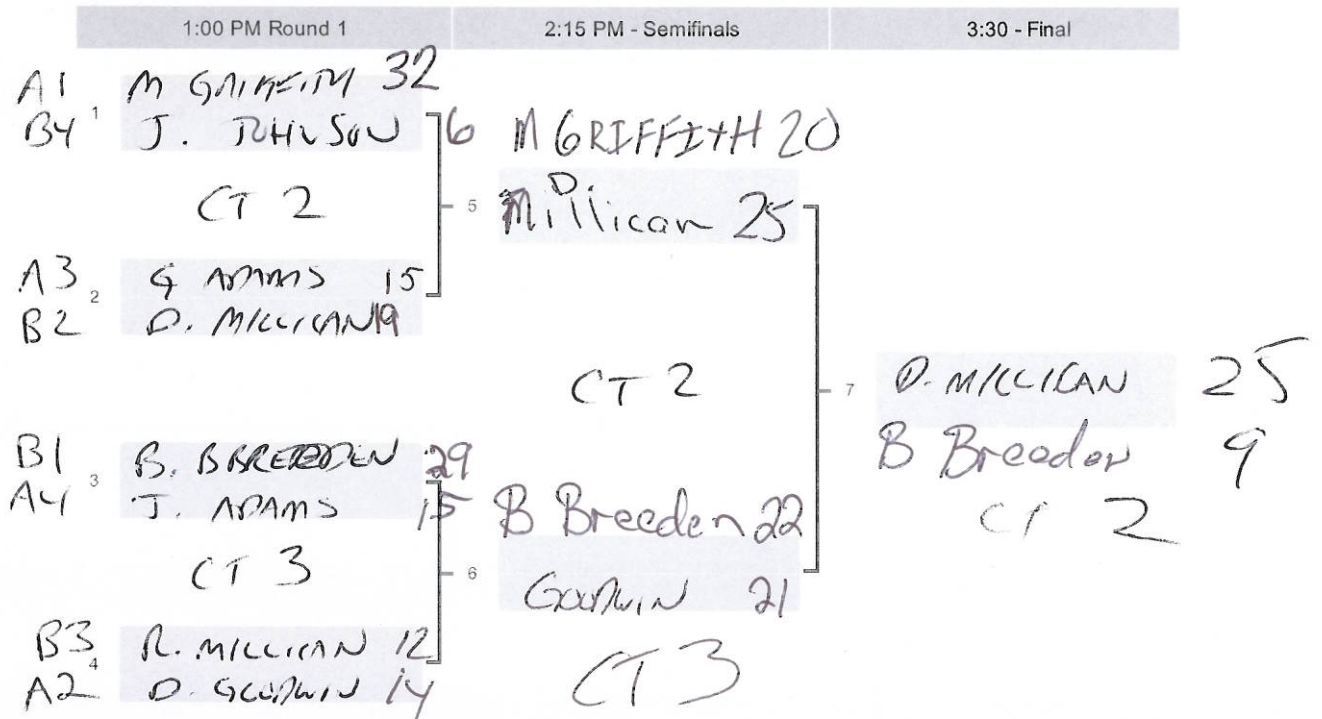 1:00 PM Round 1
2:15 PM - Semifinals
3:30 - Final
A1 M GRIFFITH 32
B4 1 J. JOHNSON 6
CT 2
A3 2 G ADAMS 15
B2 D. MILLICAN 19
B1 3 B. BREEDEN 29
A4 J. ADAMS 15
CT 3
B3 4 R. MILLICAN 12
A2 D. GOODWIN 14
M GRIFFITH 20
5 D. Millican 25
CT 2
B Breeden 22
6 GOODWIN 21
CT 3
7 D. MILLICAN 25
B Breeden 9
CT 2